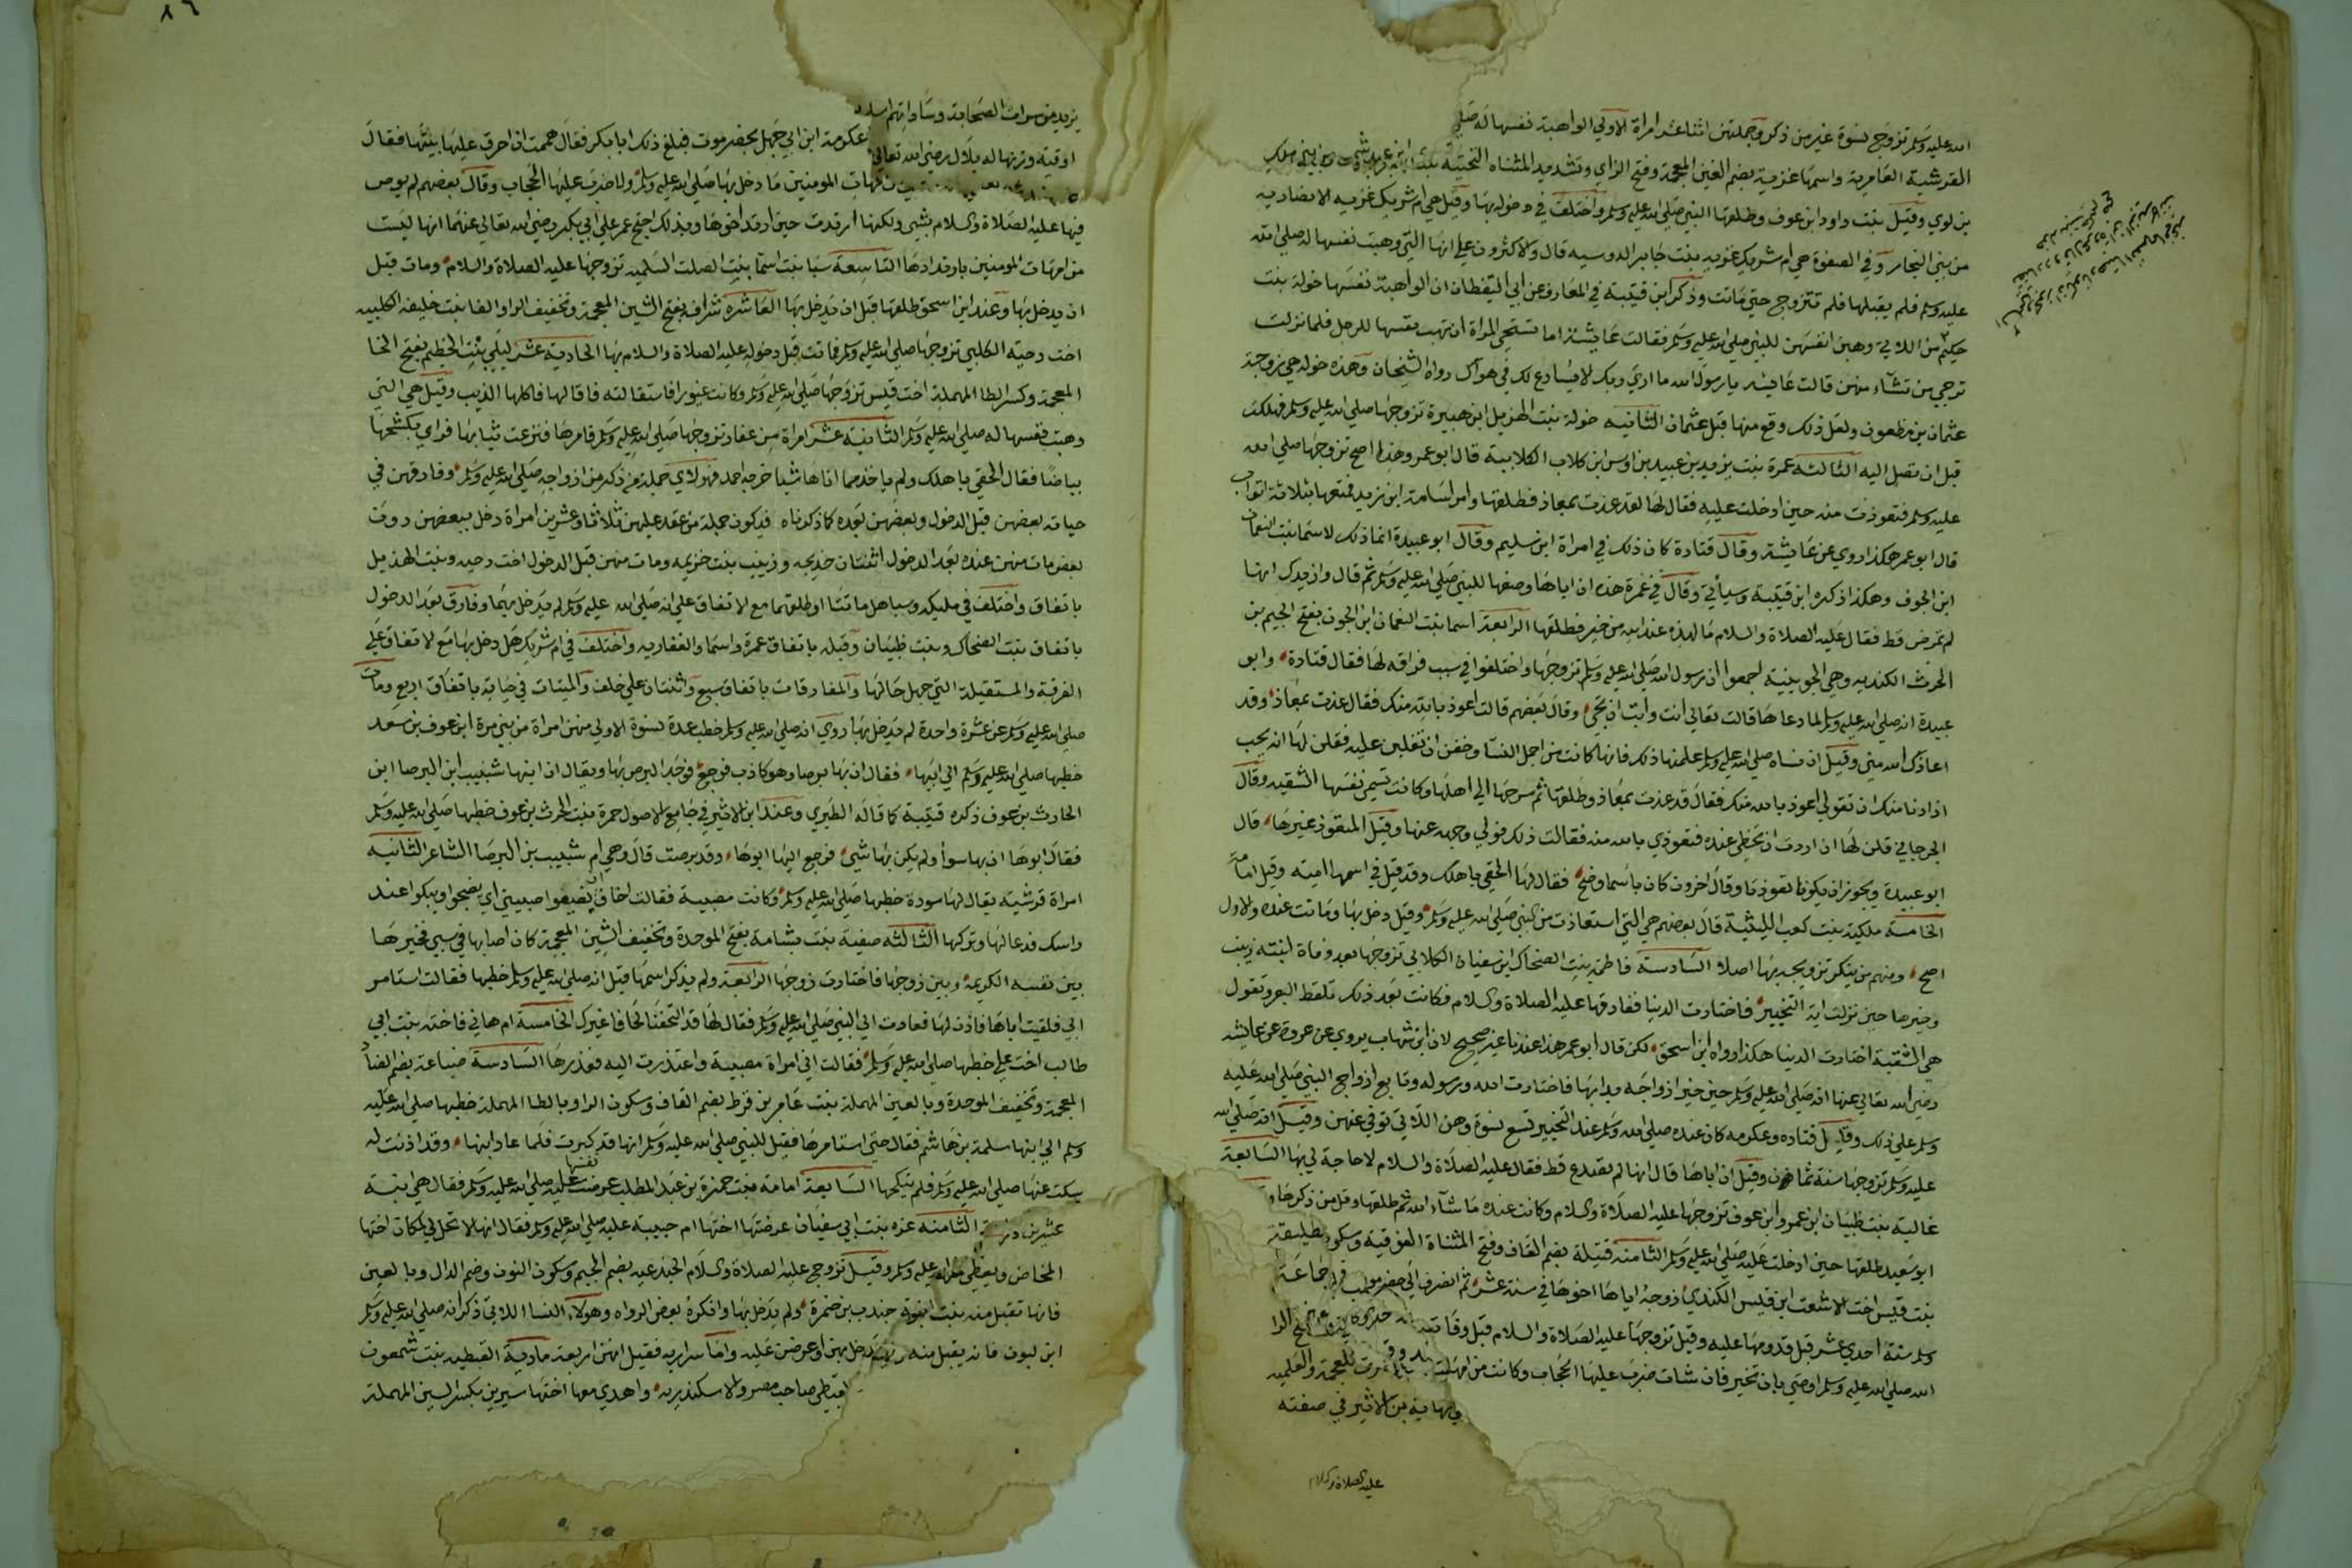 الله عليه وسلم تزوج بنسوة غير من ذكر وجملتهن اثنا عشر امراة الاولي الواهبة نفسها له صلي
القرشية العامرية واسمها غزية بضم الغين المعجمة وفتح الزاي وتشديد المثناه التحتية
بن لوي وقيل بنت داود ابن عوف وطلقها النبي صلي الله عليه وسلم واختلف في دخوله بها وقيل هي ام شريك غزيه الانصاريه
من بني النجار وفي الصفوة هي ام شريك غزيه بنت جابر الدوسيه قال والاكثرون علي انها التي وهبت نفسها له صلي الله
عليه وسلم فلم يقبلها فلم تتزوج حتي ماتت وذكر ابن قتيبة في المعارف عن ابي اليقظان ان الواهبة نفسها خولة بنت
حكيم من اللاتي وهبن انفسهن للنبي صلي الله عليه وسلم فقالت عايشة اما تستحي المراة ان تهب نفسها للرجل فلما نزلت
ترجي من تشاء منهن قالت عايشه يا رسول الله ما اري ربك الا يسارع لك في هواك رواه الشيخان وهذه خوله هي زوجة
عثمان بن مظعون ولعل ذلك وقع منها قبل عثمان الثانيه خولة بنت الهزيل ابن هبيرة تزوجها صلي الله عليه وسلم فهلكت
قبل ان تصل اليه الثالثة عمرة بنت يزيد بن عبيد بن اوس ابن كلاب الكلابية قال ابو عمر وهذا اصح تزوجها صلي الله
عليه وسلم فتعوذت منه حين ادخلت عليه فقال لها لقد عذت بمعاذ فطلقها وامر اسامة ابن زيد فمتعها بثلاثة اثواب
قال ابو عمر هكذا روي عن عايشة وقال قتادة كان ذلك في امراة ابن سليم وقال ابو عبيدة انما ذلك لاسما بنت النعمان
ابن الجون وهكذا ذكره ابن قتيبة وسياتي وقال في عمرة هذه ان اباها وصفها للنبي صلي الله عليه وسلم ثم قال وازيدك انها
لم تمرض قط فقال عليه الصلاة والسلام ما لهذه عند الله من خير فطلقها الرابعة اسما بنت النعمان ابن الجون بفتح الجيم بن
الحرث الكنديه وهي الجوينية اجمعوا ان رسول الله صلي الله عليه وسلم تزوجها واختلفوا في سبب فراقه لها فقال قتادة وابو
عبيدة انه صلي الله عليه وسلم لما دعاها قالت تعالي انت وابت ان تجي وقال بعضهم قالت اعوذ بالله منك فقال عذت بمعاذ وقد
اعاذك الله مني وقيل ان نساه صلي الله عليه وسلم علمنها ذلك فانها كانت من اجل النسا وخفن ان تغلبن عليه فقلن لها انه يحب
اذا دنا منك ان تقولي اعوذ بالله منك فقال قد عذت بمعاذ وطلقها ثم سرحها الي اهلها وكانت تسمي نفسها الشقيه وقال
الجرجاني قلن لها ان اردت ان تحظي عنده فتعوذي بالله منه فقالت ذلك فولي وجهه عنها وقيل المتعوذ غيرها قال
ابو عبيدة ويجوز ان يكونا تعوذتا وقال اخرون كان باسما وضح فقال لها الحقي باهلك وقد قيل في اسمها امينه وقيل امامة
الخامسة مليكة بنت كعب الليثية قال بعضهم هي التي استعاذت من النبي صلي الله عليه وسلم وقيل دخل بها وماتت عنده والاول
اصح ومنهم من ينكر تزويجه بها اصلا السادسة فاطمة بنت الضحاك ابن سفيان الكلابي تزوجها بعد وفاة ابنته زينب
وخيرها حين نزلت اية التخيير فاختارت الدنيا ففارقها عليه الصلاة والسلام فكانت بعد ذلك تلقط البعر وتقول
هي الشقية اختارت الدنيا هكذا رواه ابن اسحق لكن قال ابو عمر هذا عندنا غير صحيح لان ابن شهاب يروي عن عروة عن عايشه
رضي الله تعالي عنها انه صلي الله عليه وسلم حين خير ازواجه بدا بها فاختارت الله ورسوله وتابع ازواج النبي صلي الله عليه
وسلم علي ذلك وقال قتاده وعكرمه كان عنده صلي الله وسلم عند التخيير تسع نسوة وهن اللاتي توفي عنهن وقيل انه صلي الله
عليه وسلم تزوجها سنة ثمان وقيل ان اباها قال انها لم تصدع قط فقال عليه الصلاة والسلام لا حاجة لي بها السابعة
عالية بنت ظبيان ابن عمرو ابن عوف تزوجها عليه الصلاة والسلام وكانت عنده ما شاء الله ثم طلقها وقل من ذكرها
ابو سعيد طلقها حين ادخلت عليه صلي الله عليه وسلم الثامنه قتيلة بضم القاف وفتح المثناة الفوقية وسكون
بنت قيس اخت الاشعث ابن قيس الكندي زوجه اياها اخوها في سنة عشر ثم انصرف الي حضرموت
وسلم سنة احدي عشر قبل قدومها عليه وقيل تزوجها عليه الصلاة والسلام قبل وفاته
الله صلي الله عليه وسلم اوصي بان تخير فان شات ضرب عليها الحجاب وكانت من امهات
نهاية بن الاثير في صفته
عليه الصلاة والسلام
٨٦
يزيد من سراة الصحابة وساداتهم
اوقيه وزنها له بلال رضي الله تعالي عكرمة ابن ابي جهل بحضرموت فبلغ ذلك ابا بكر فقال هممت ان احرق عليها بيتها فقال
امهات المومنين ما دخل بها صلي الله عليه وسلم ولا ضرب عليها الحجاب وقال بعضهم لم يوص
فيها عليه الصلاة والسلام بشي ولكنها ارتدت حين ارتد اخوها وبذلك احتج عمر علي ابي بكر رضي الله تعالي عنهما انها ليست
من امهات المومنين بارتدادها التاسعة سبا بنت اسما بنت الصلت السلميه تزوجها عليه الصلاة والسلام ومات قبل
ان يدخل بها وعند ابن اسحق طلقها قبل ان يدخل بها العاشرة شراف بفتح الشين المعجمة وتخفيف الرا والفا بنت خليفه الكلبيه
اخت دحية الكلبي تزوجها صلي الله عليه وسلم فماتت قبل دخوله عليه الصلاة والسلام بها الحادية عشر ليلي بنت الخطيم بفتح الخا
المعجمة وكسر الطا المهملة اخت قيس تزوجها صلي الله عليه وسلم وكانت غيورا فاستقالته فاقالها فاكلها الذيب وقيل هي التي
وهبت نفسها له صلي الله عليه وسلم الثانية عشر امراة من غفار تزوجها صلي الله عليه وسلم فامرها فنزعت ثيابها فراي بكشحها
بياضا فقال الحقي باهلك ولم ياخذ مما اتاها شيا خرجه احمد فهولاي جملة من ذكر من ازواجه صلي الله عليه وسلم وفارقهن في
حياته بعضهن قبل الدخول وبعضهن بعده كما ذكرناه فيكون جملة من عقد عليهن ثلاثا وعشرين امراة دخل ببعضهن دون
بعض مات منهن عنده بعد الدخول اثنتان خديجه وزينب بنت خزيمه ومات منهن قبل الدخول اخت دحيه وبنت الهذيل
باتفاق واختلف في مليكه وسبا هل ماتتا او طلقهما مع الاتفاق علي انه صلي الله عليه وسلم لم يدخل بهما وفارق بعد الدخول
باتفاق بنت الضحاك وبنت ظبيان وقبله باتفاق عمرة واسما والغفاريه واختلف في ام شريك هل دخل بها مع الاتفاق علي
الفرقة والمستقيلة التي جهل حالها والمفارقات باتفاق سبع واثنتان علي خلف والميتات في حياته باتفاق اربع ومات
صلي الله عليه وسلم عن عشرة واحدة لم يدخل بها روي انه صلي الله عليه وسلم خطب عدة نسوة الاولي منهن امراة من بني مرة ابن عوف بن سعد
خطبها صلي الله عليه وسلم الي ابيها فقال ان بها برصا وهو كاذب فرجع فوجد البرص بها ويقال ان ابنها شبيب ابن البرصا ابن
الحارث بن عوف ذكره قتيبة كما قاله الطبري وعند ابن الاثير في جامع الاصول حمرة بنت الحرث بن عوف خطبها صلي الله عليه وسلم
فقال ابوها ان بها سوأ ولم يكن بها شي فرجع اليها ابوها وقد برصت قال وهي ام شبيب بن البرصا الشاعر الثانيه
امراة قرشية يقال لها سودة خطبها صلي الله عليه وسلم وكانت مصبية فقالت اخاف ان يضبعوا صبيتي اي يضجوا ويبكوا عند
راسك فدعا لها وتركها الثالثه صفية بنت بشامة بفتح الموحدة وتخفيف الشين المعجمة كان اصابها في سبي فخيرها
بين نفسه الكريمة وبين زوجها فاختارت زوجها الرابعة ولم يذكر اسمها قيل انه صلي الله عليه وسلم خطبها فقالت استامر
ابي فلقيت اباها فاذن لها فعادت الي النبي صلي الله عليه وسلم فقال لها قد التحفنا لحافا غيرك الخامسة ام هاني فاختة بنت ابي
طالب اخت علي خطبها صلي الله عليه وسلم فقالت اني امراة مصبية واعتذرت اليه فعذرها السادسة ضباعة بضم الضاد
المعجمة وتخفيف الموحدة وبالعين المهملة بنت عامر بن قرط بضم القاف وسكون الرا وبالطا المهملة خطبها صلي الله عليه
وسلم الي ابنها سلمة بن هاشم فقال حتي استامرها فقيل للنبي صلي الله عليه وسلم انها قد كبرت فلما عاد ابنها وقد اذنت له
سكت عنها صلي الله عليه وسلم فلم ينكحها السابعة امامة بنت حمزة بن عبد المطلب عرضت نفسها عليه صلي الله عليه وسلم فقال هي ابنة
الثامنه عزه بنت ابي سفيان عرضتها اختها ام حبيبة عليه صلي الله عليه وسلم فقال انها لا تحل لي لمكان اختها
عليه وسلم وقيل تزوج عليه الصلاة والسلام الجندعيه بضم الجيم وسكون النون وضم الدال وبالعين
فانها تقبل منه بنت ابنة جندب بن ضمرة ولم يدخل بها وانكره بعض الرواه وهولاء النسا اللاتي ذكر انه صلي الله عليه وسلم
ابن لبون فانه يقبل منه دخل بهن او عرضن عليه واما سراريه فقيل انهن اربعة مارية القبطيه بنت شمعون
القبطي صاحب مصر والاسكندريه واهدي معها اختها سيرين بكسر السين المهملة